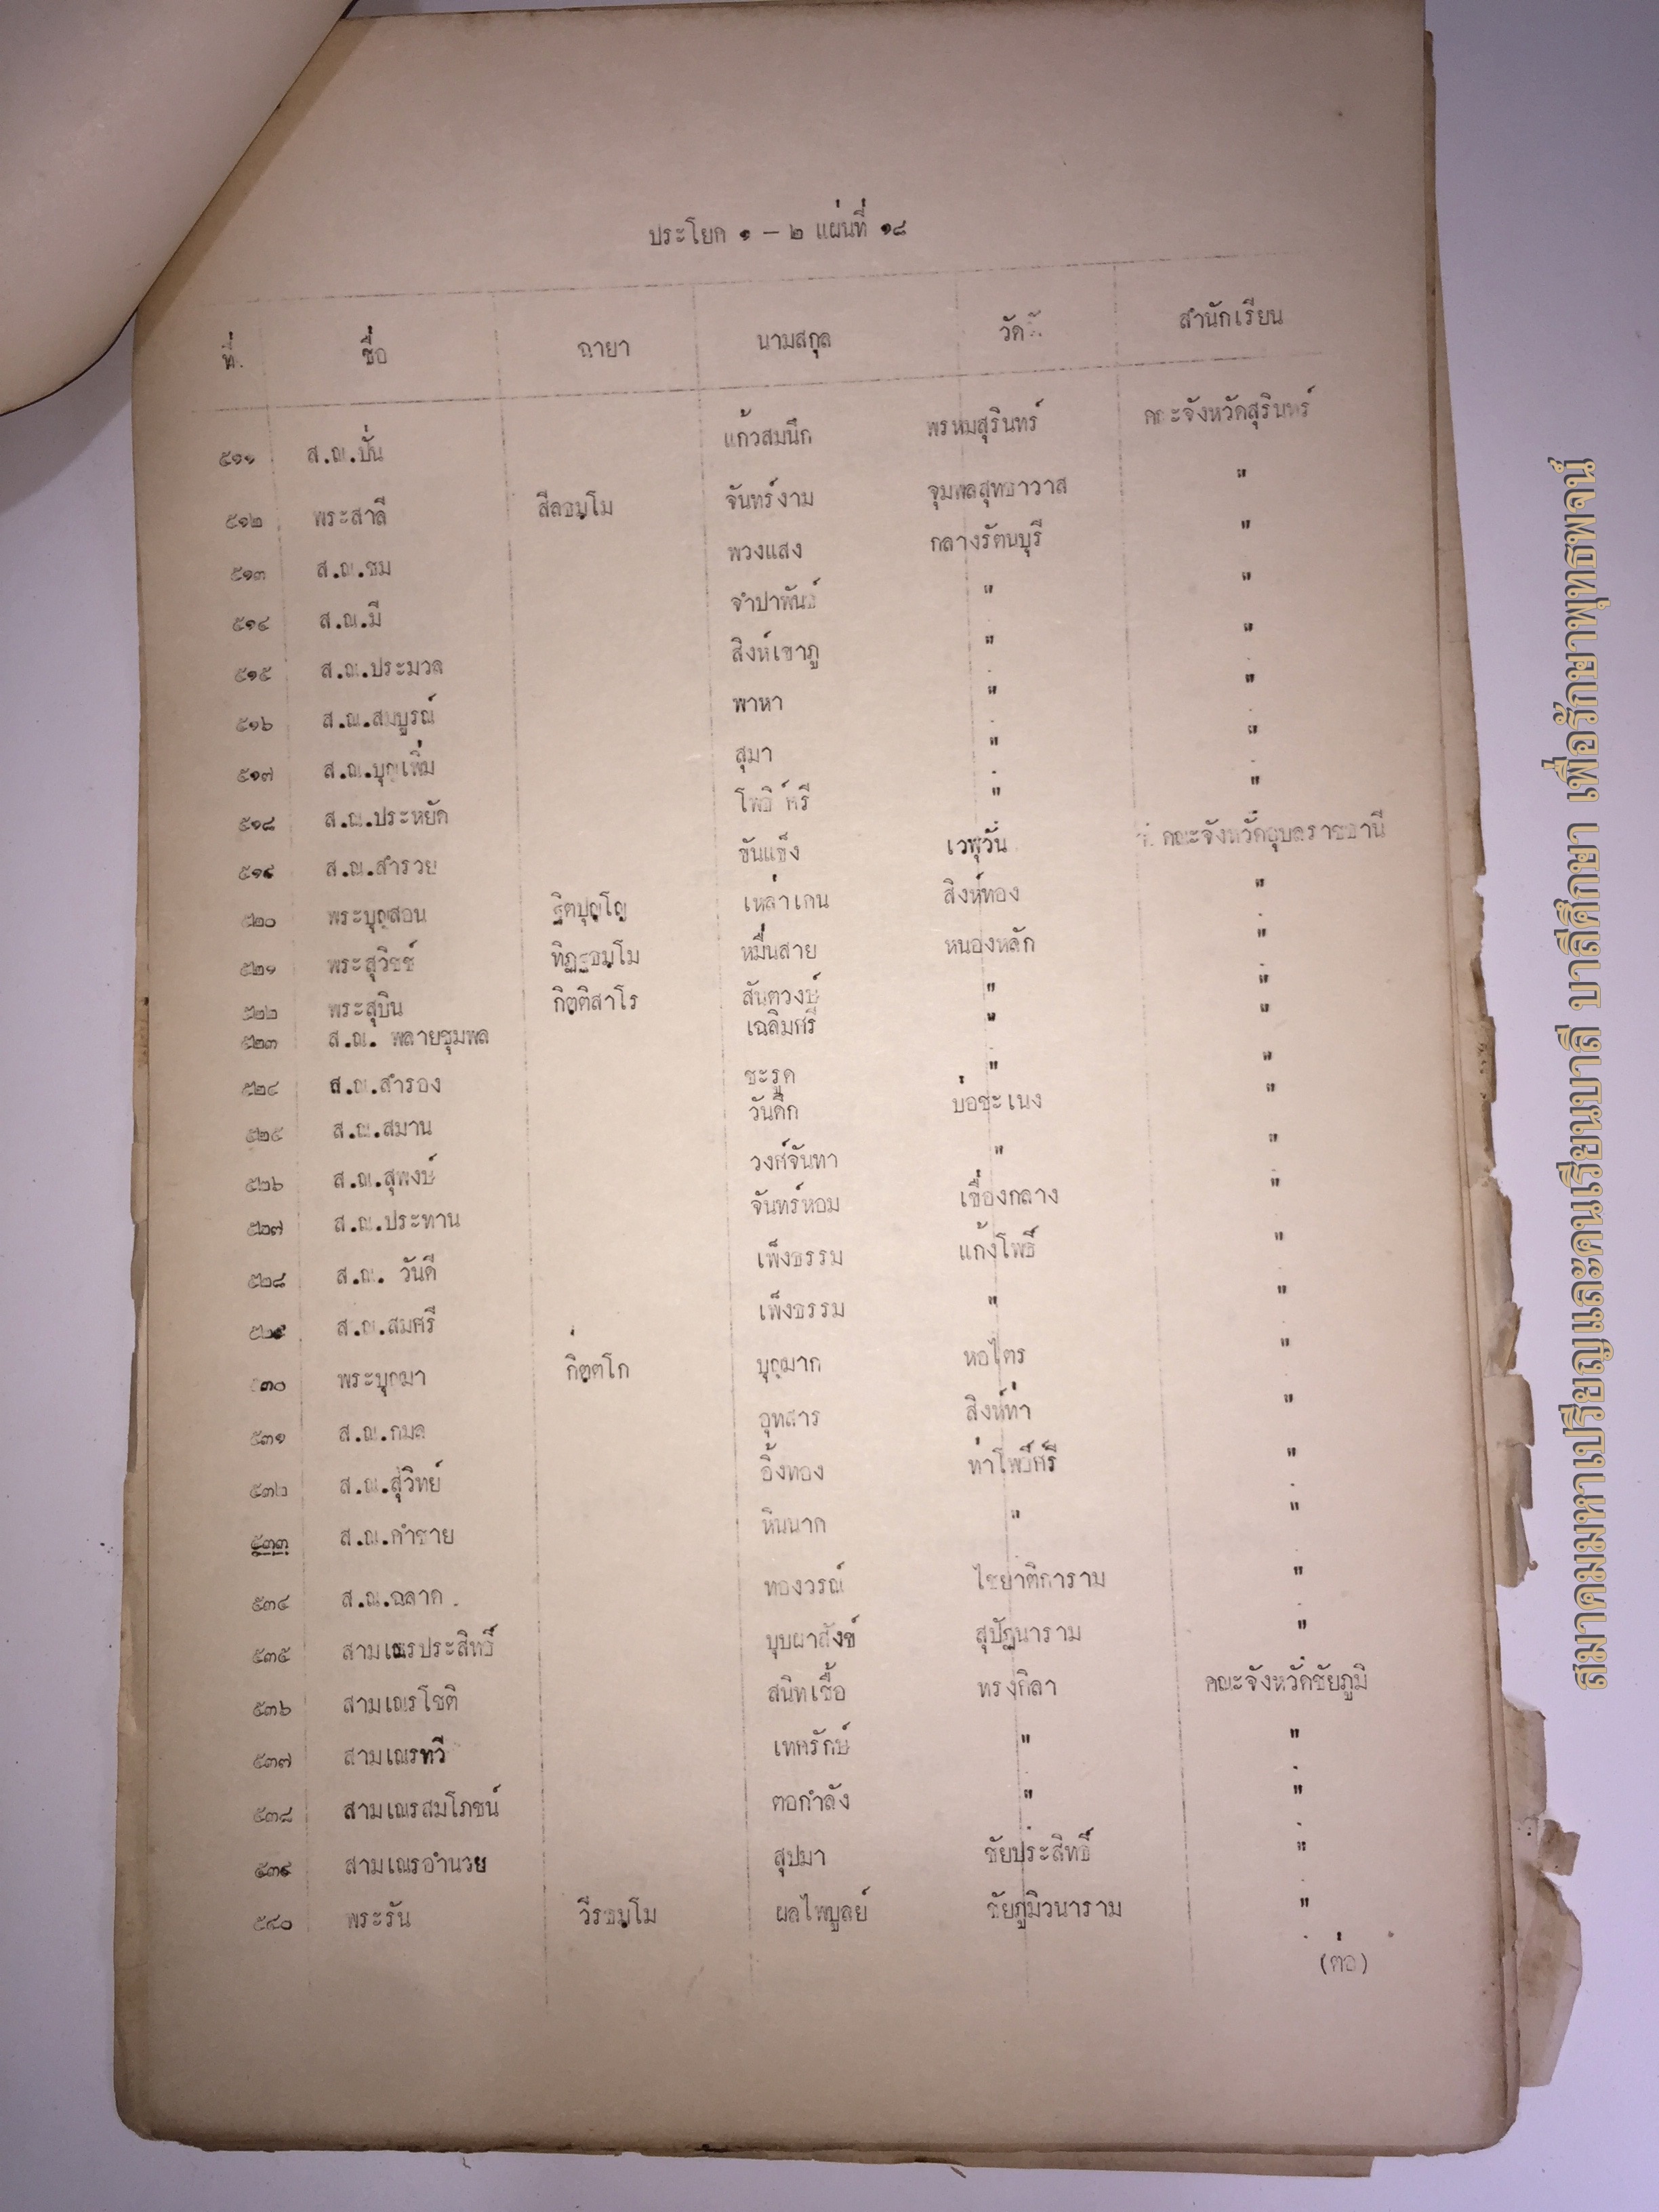 ประโยค ๑ - ๒ แผ่นที่ ๑๘
ที่. ชื่อ ฉายา นามสกุล วัด สำนักเรียน
๕๑๑ ส.ณ.ปั่น แก้วสมนึก พรหมสุรินทร์ คณะจังหวัดสุรินทร์
๕๑๒ พระสาลี สีลธมฺโม จันทร์งาม จุมพลสุทธาวาส "
๕๑๓ ส.ณ.ชม พวงแสง กลางรัตนบุรี "
๕๑๔ ส.ณ.มี จำปาพันธ์ " "
๕๑๕ ส.ณ.ประมวล สิงห์เขาภู " "
๕๑๖ ส.ณ.สมบูรณ์ พาหา " "
๕๑๗ ส.ณ.บุญเพิ่ม สุมา " "
๕๑๘ ส.ณ.ประหยัด โพธิ์ศรี " "
๕๑๙ ส.ณ.สำรวย ขันแข็ง เวฬุวัน คณะจังหวัดอุบลราชธานี
๕๒๐ พระบุญสอน ฐิตปุญฺโญ เหล่าเคน สิงห์ทอง "
๕๒๑ พระสุวิชช์ ทิฏฺฐธมฺโม หมื่นสาย หนองหลัก "
๕๒๒ พระสุบิน กิตฺติสาโร สันตวงษ์ " "
๕๒๓ ส.ณ. พลายชุมพล เฉลิมศรี " "
๕๒๔ ส.ณ.สำรอง ชะรูด " "
๕๒๕ ส.ณ.สมาน วันดึก บ่อชะเนง "
๕๒๖ ส.ณ.สุพงษ์ วงศ์จันทา " "
๕๒๗ ส.ณ.ประทาน จันทร์หอม เขื่องกลาง "
๕๒๘ ส.ณ. วันดี เพ็งธรรม แก้งโพธิ์ "
๕๒๙ ส.ณ.สมศรี เพ็งธรรม " "
๕๓๐ พระบุญมา กิตฺตโก บุญมาก หอไตร "
๕๓๑ ส.ณ.กมล อุทสาร สิงห์ท่า "
๕๓๒ ส.ณ.สุวิทย์ อิ้งทอง ท่าโพธิ์ศรี "
๕๓๓ ส.ณ.คำชาย หินนาก " "
๕๓๔ ส.ณ.ฉลาด . ทองวรณ์ ไชยาติการาม "
๕๓๕ สามเณรประสิทธิ์ บุบผาสังข์ สุปัฏนาราม "
๕๓๖ สามเณรโชติ สนิทเชื้อ ทรงศิลา คณะจังหวัดชัยภูมิ
๕๓๗ สามเณรทวี เทศรักษ์ " "
๕๓๘ สามเณรสมโภชน์ ตอกำลัง " "
๕๓๙ สามเณรอำนวย สุปมา ชัยประสิทธิ์ "
๕๔๐ พระรัน วีรธมฺโม ผลไพบูลย์ ชัยภูมิวนาราม "
(ต่อ)
สมาคมมหาเปรียญและคนเรียนบาลี บาลีศึกษา เพื่อรักษาพุทธพจน์